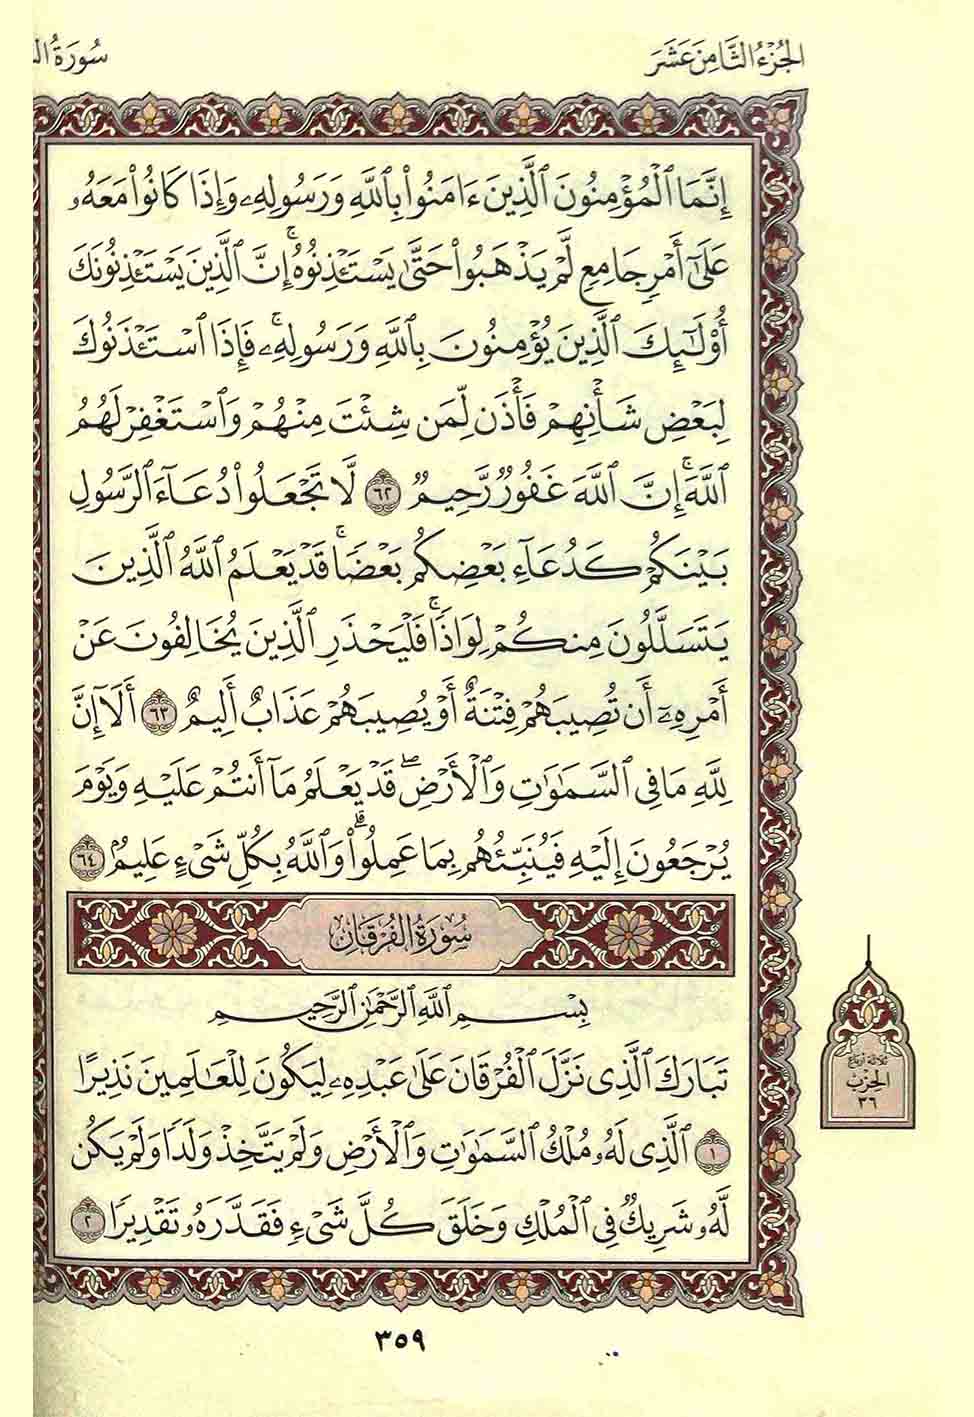 الجُزْءُ الثَّامِنَ عَشَرَ
سُورَةُ
إِنَّمَا ٱلْمُؤْمِنُونَ ٱلَّذِينَ ءَامَنُوا۟ بِٱللَّهِ وَرَسُولِهِۦ وَإِذَا كَانُوا۟ مَعَهُۥ
عَلَىٰٓ أَمْرٍ جَامِعٍ لَّمْ يَذْهَبُوا۟ حَتَّىٰ يَسْتَـْٔذِنُوهُ ۚ إِنَّ ٱلَّذِينَ يَسْتَـْٔذِنُونَكَ
أُو۟لَـٰٓئِكَ ٱلَّذِينَ يُؤْمِنُونَ بِٱللَّهِ وَرَسُولِهِۦ ۚ فَإِذَا ٱسْتَـْٔذَنُوكَ
لِبَعْضِ شَأْنِهِمْ فَأْذَن لِّمَن شِئْتَ مِنْهُمْ وَٱسْتَغْفِرْ لَهُمُ
ٱللَّهَ ۚ إِنَّ ٱللَّهَ غَفُورٌ رَّحِيمٌ ٦٢ لَّا تَجْعَلُوا۟ دُعَآءَ ٱلرَّسُولِ
بَيْنَكُمْ كَدُعَآءِ بَعْضِكُم بَعْضًا ۚ قَدْ يَعْلَمُ ٱللَّهُ ٱلَّذِينَ
يَتَسَلَّلُونَ مِنكُمْ لِوَاذًا ۚ فَلْيَحْذَرِ ٱلَّذِينَ يُخَالِفُونَ عَنْ
أَمْرِهِۦٓ أَن تُصِيبَهُمْ فِتْنَةٌ أَوْ يُصِيبَهُمْ عَذَابٌ أَلِيمٌ ٦٣ أَلَآ إِنَّ
لِلَّهِ مَا فِى ٱلسَّمَـٰوَٰتِ وَٱلْأَرْضِ ۖ قَدْ يَعْلَمُ مَآ أَنتُمْ عَلَيْهِ وَيَوْمَ
يُرْجَعُونَ إِلَيْهِ فَيُنَبِّئُهُم بِمَا عَمِلُوا۟ ۗ وَٱللَّهُ بِكُلِّ شَىْءٍ عَلِيمٌۢ ٦٤
سُورَةُ الفُرْقَانِ
بِسْمِ ٱللَّهِ ٱلرَّحْمَـٰنِ ٱلرَّحِيمِ
تَبَارَكَ ٱلَّذِى نَزَّلَ ٱلْفُرْقَانَ عَلَىٰ عَبْدِهِۦ لِيَكُونَ لِلْعَـٰلَمِينَ نَذِيرًا
١ ٱلَّذِى لَهُۥ مُلْكُ ٱلسَّمَـٰوَٰتِ وَٱلْأَرْضِ وَلَمْ يَتَّخِذْ وَلَدًا وَلَمْ يَكُن
لَّهُۥ شَرِيكٌ فِى ٱلْمُلْكِ وَخَلَقَ كُلَّ شَىْءٍ فَقَدَّرَهُۥ تَقْدِيرًا ٢
ثلاثة أرباع
الحِزْب
٣٦
٣٥٩